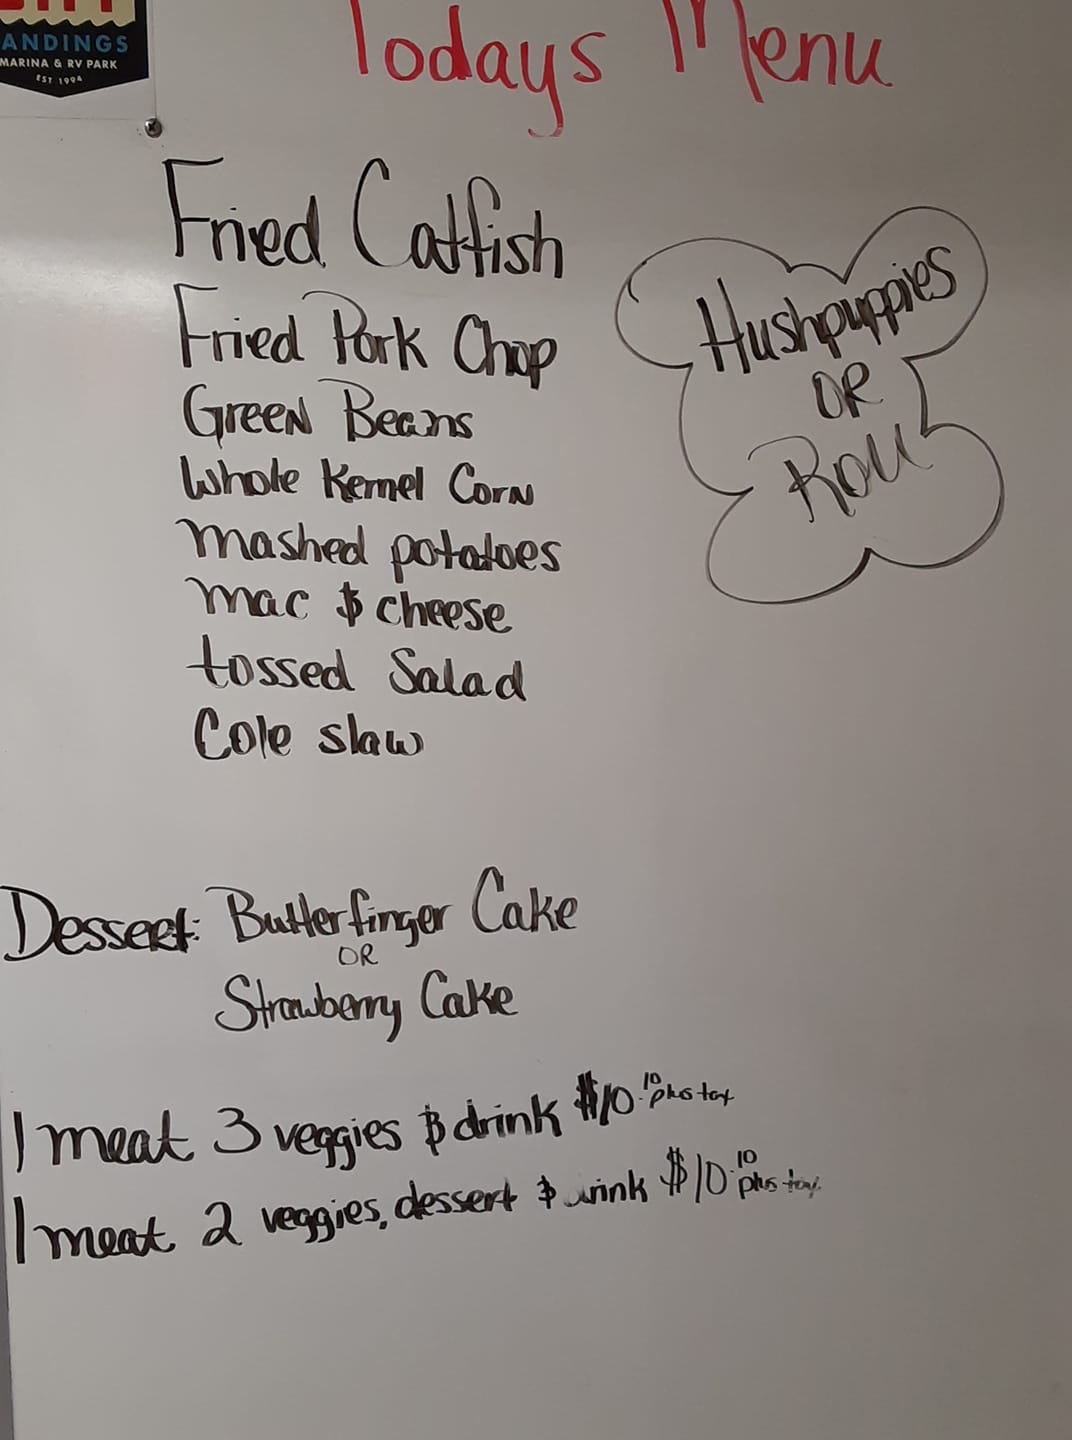 ANDINGS
MARINA & RV PARK
EST 1994
Todays Menu
Fried Catfish
Fried Pork Chop
Green Beans
Whole Kernel Corn
mashed potatoes
mac & cheese
tossed Salad
Cole slaw
Hushpuppies
OR
Roll
Dessert: Butterfinger Cake
OR
Strawberry Cake
1 meat 3 veggies & drink $10.10 plus tax
1 meat 2 veggies, dessert & drink $10.10 plus tax